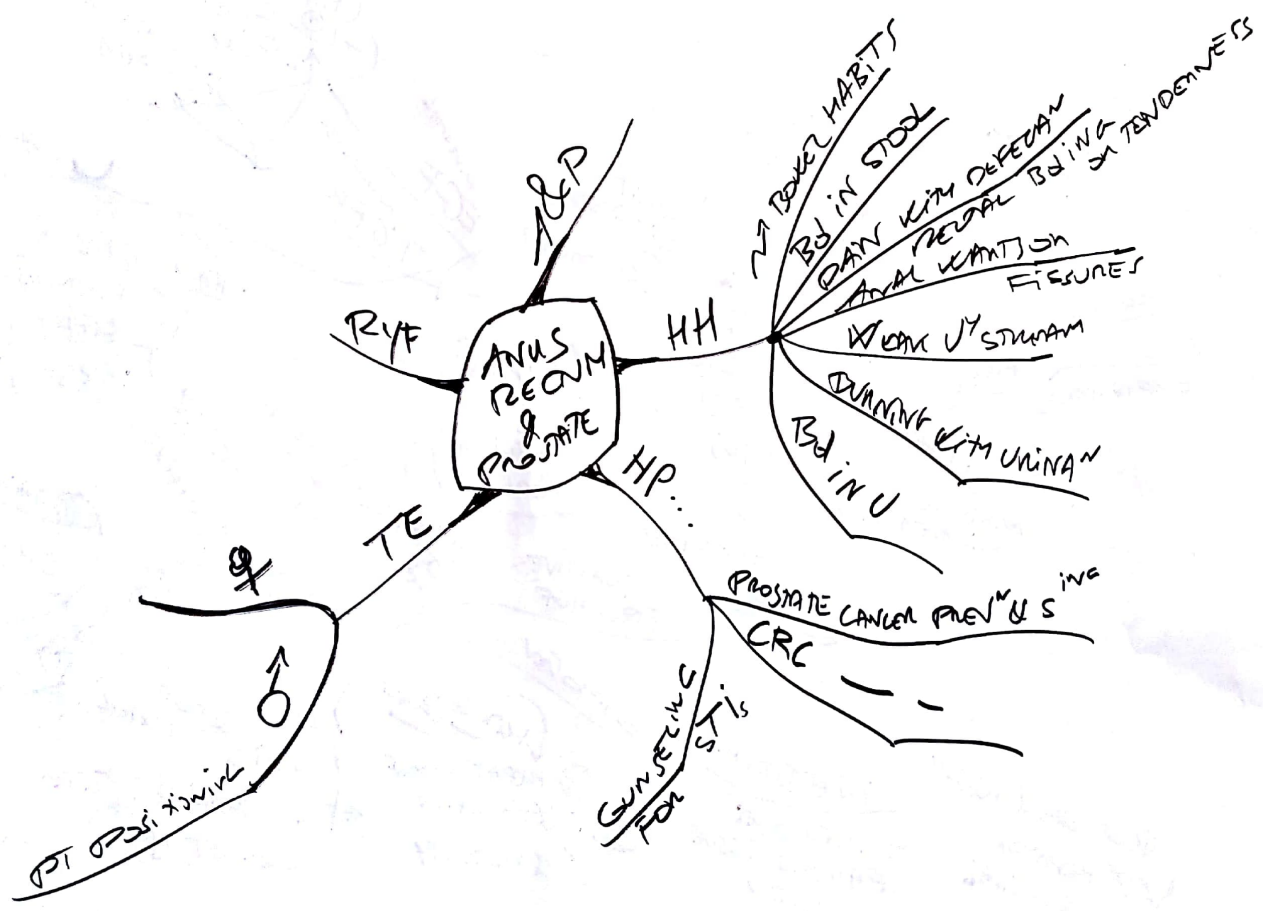 A&P
ANUS
RECNM
&
PROSTATE
HH
BOWEL HABITS
Bd iN STOOL
PAiN WiTH DEFECAN
RECTAL Bding
OR TENDERNESS
ANAL WARTS OR
FiSSURES
WEAK UY STREAM
BURNING WiTH URiNAN
Bd iN U
HP...
PROSTATE CANCER PREVN & SING
CRC
COUNSELING
FOR STis
TE
♀
♂
PT POSiTiONiNG